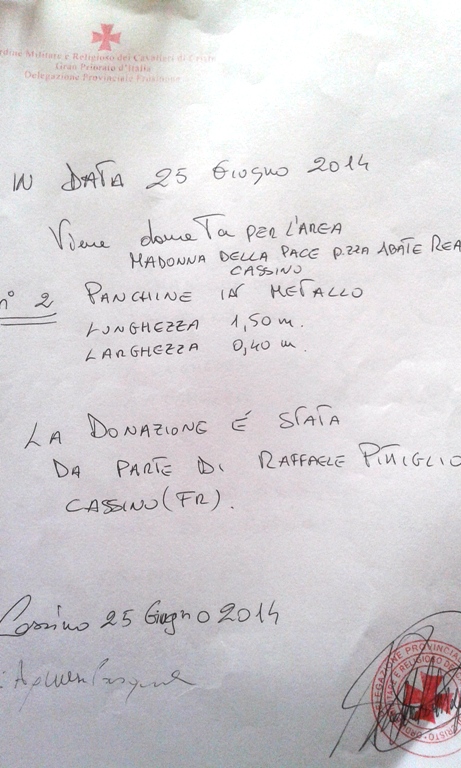 rdine Militare e Religioso dei Cavalieri di Cristo
Gran Priorato d'Italia
Delegazione Provinciale Frosinone
IN DATA 25 GIUGNO 2014
Viene donata PER L'AREA
MADONNA DELLA PACE P.ZZA ABATE REA
CASSINO
n° 2 PANCHINE IN METALLO
LUNGHEZZA 1,50 m.
LARGHEZZA 0,40 m.
LA DONAZIONE É STATA
DA PARTE DI RAFFAELE
CASSINO (FR).
Cassino 25 Giugno 2014
DELEGAZIONE PROVINCIA
RELIGIOSO DE
CRISTO